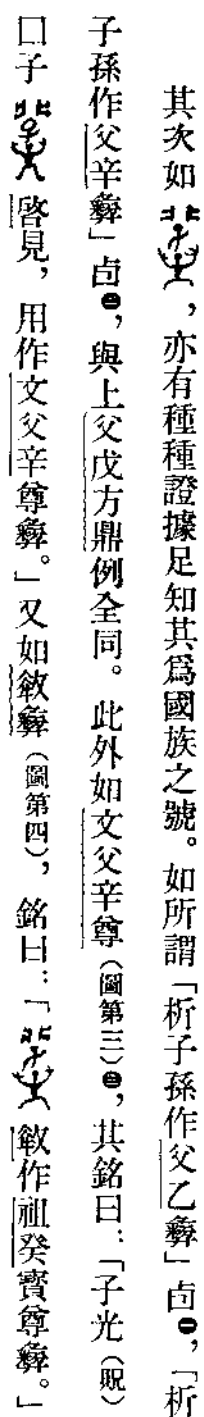 其次如，亦有種種證據足知其爲國族之號。如所謂「析子孫作父乙彝」卣㊀，「析
子孫作父辛彝」卣㊁，與上父戊方鼎例全同。此外如文父辛尊（圖第三）㊂，其銘曰：「子光（貺）
囗子啓見，用作文父辛尊彝。」又如敏彝（圖第四），銘曰：「敏作祖癸寶尊彝。」